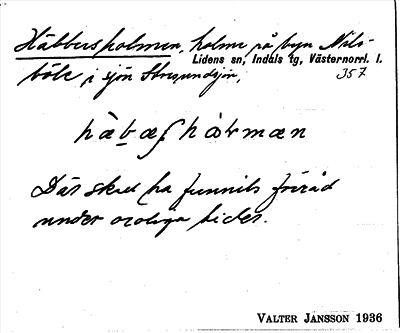 Häbbersholmen, holme på byn Nils-
Lidens sn, Indals tg, Västernorrl. l.
böle i sjön 357
hàb̲æʃhòlmæn
Där skall ha funnits förråd
under oroliga tider.
VALTER JANSSON 1936